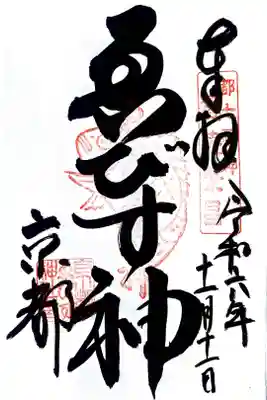 奉拝
令和六年
十一月十一日
ゑびす神
京都